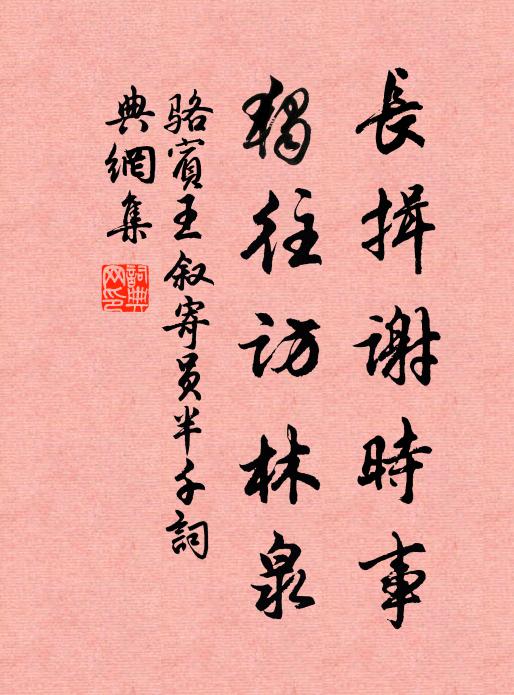 長揖謝時事
獨往訪林泉
駱賓王叙寄员半千詞
典網集
詞典
网印